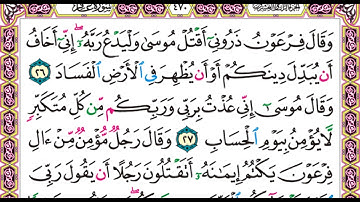 ٤٧٠
وَقَالَ فِرْعَوْنُ ذَرُونِىٓ أَقْتُلْ مُوسَىٰ وَلْيَدْعُ رَبَّهُۥٓ ۖ إِنِّىٓ أَخَافُ
أَن يُبَدِّلَ دِينَكُمْ أَوْ أَن يُظْهِرَ فِى ٱلْأَرْضِ ٱلْفَسَادَ ٢٦
وَقَالَ مُوسَىٰٓ إِنِّى عُذْتُ بِرَبِّى وَرَبِّكُم مِّن كُلِّ مُتَكَبِّرٍ
لَّا يُؤْمِنُ بِيَوْمِ ٱلْحِسَابِ ٢٧ وَقَالَ رَجُلٌ مُّؤْمِنٌ مِّنْ ءَالِ
فِرْعَوْنَ يَكْتُمُ إِيمَٰنَهُۥٓ أَتَقْتُلُونَ رَجُلًا أَن يَقُولَ رَبِّىَ